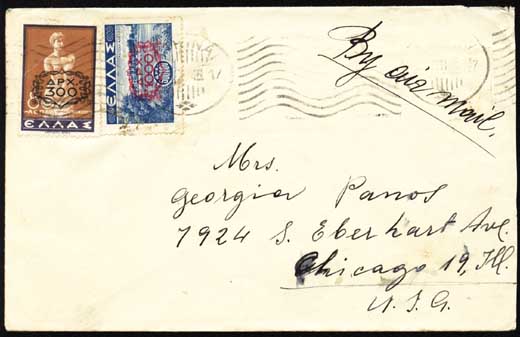 ΔΡΧ.
300
ΕΛΛΑΣ
ΕΛΛΑΣ
1000
By air mail.
Mrs.
Georgia Panos
7924 S. Eberhart Ave.
Chicago 19, Ill.
U.S.A.